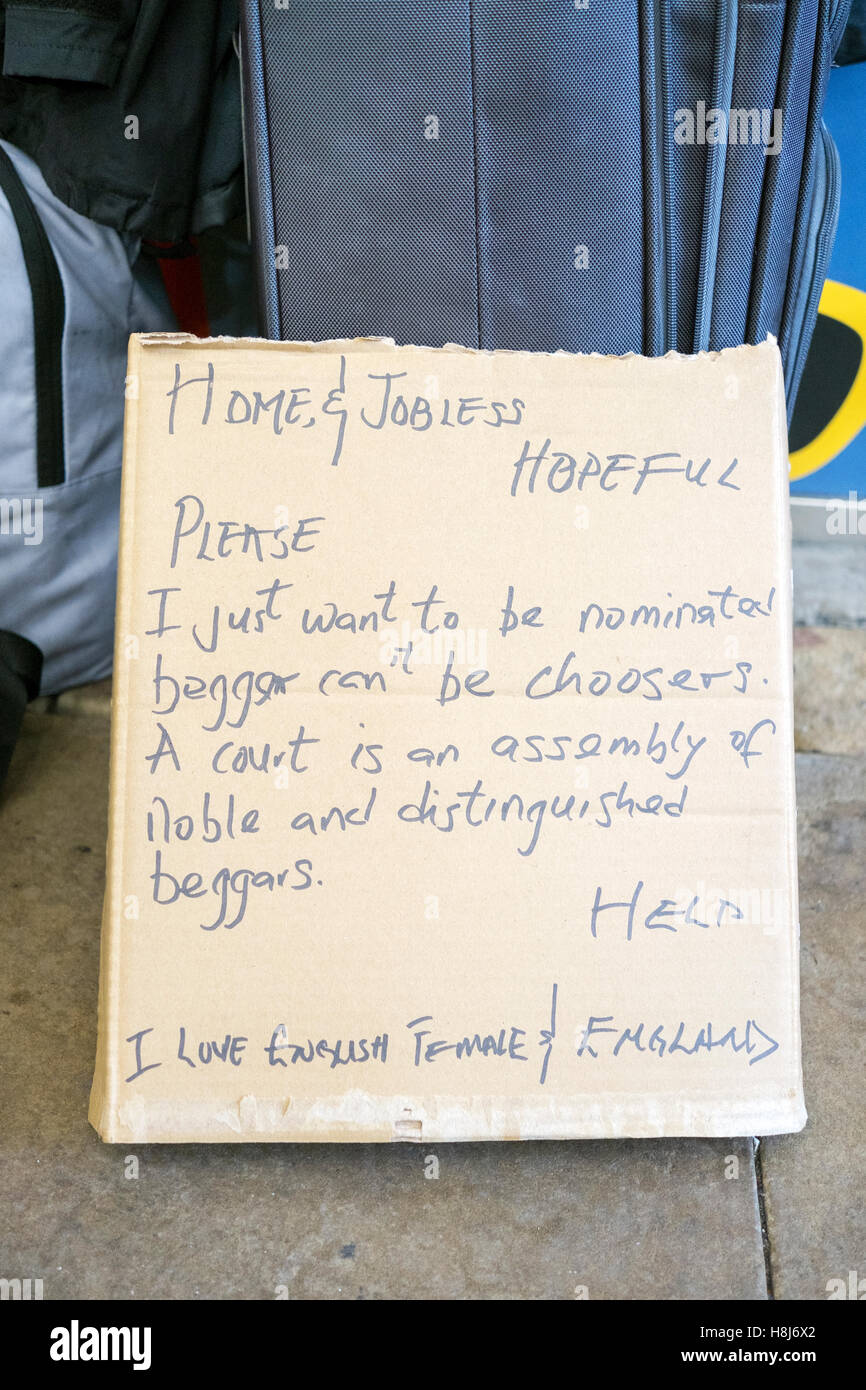 HOME, & JOBLESS
HOPEFUL
PLEASE
I just want to be nominated
beggar can't be choosers.
A court is an assembly of
noble and distinguished
beggars.
HELP
I LOVE ENGLISH FEMALE & ENGLAND
alamy
alamy stock photo
H8J6X2
www.alamy.com